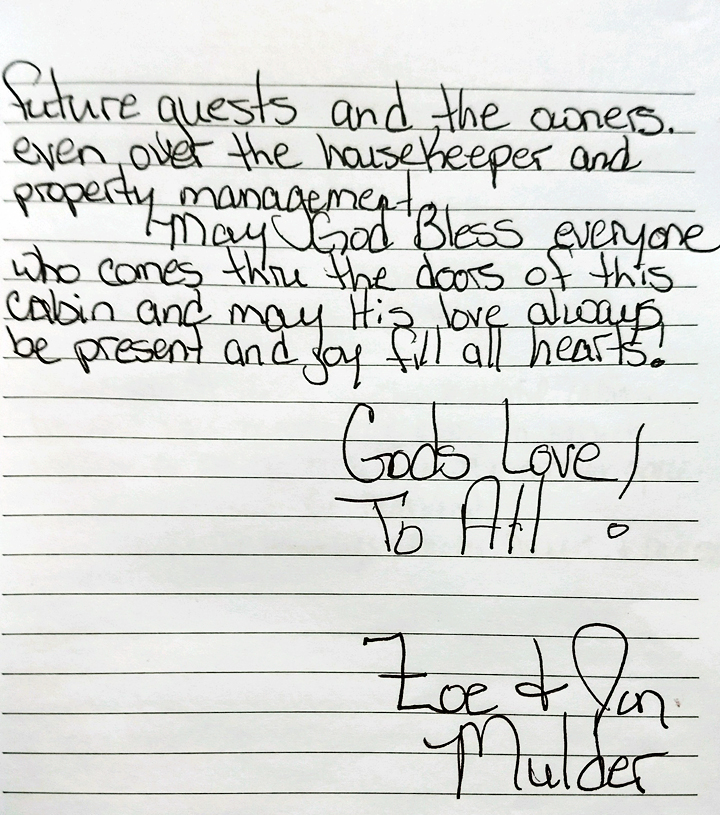 future guests and the owners.
even over the housekeeper and
property management
May God Bless everyone
who comes thru the doors of this
cabin and may His love always
be present and joy fill all hearts!
Gods Love!
To All!
Zoe & Jan
Mulder